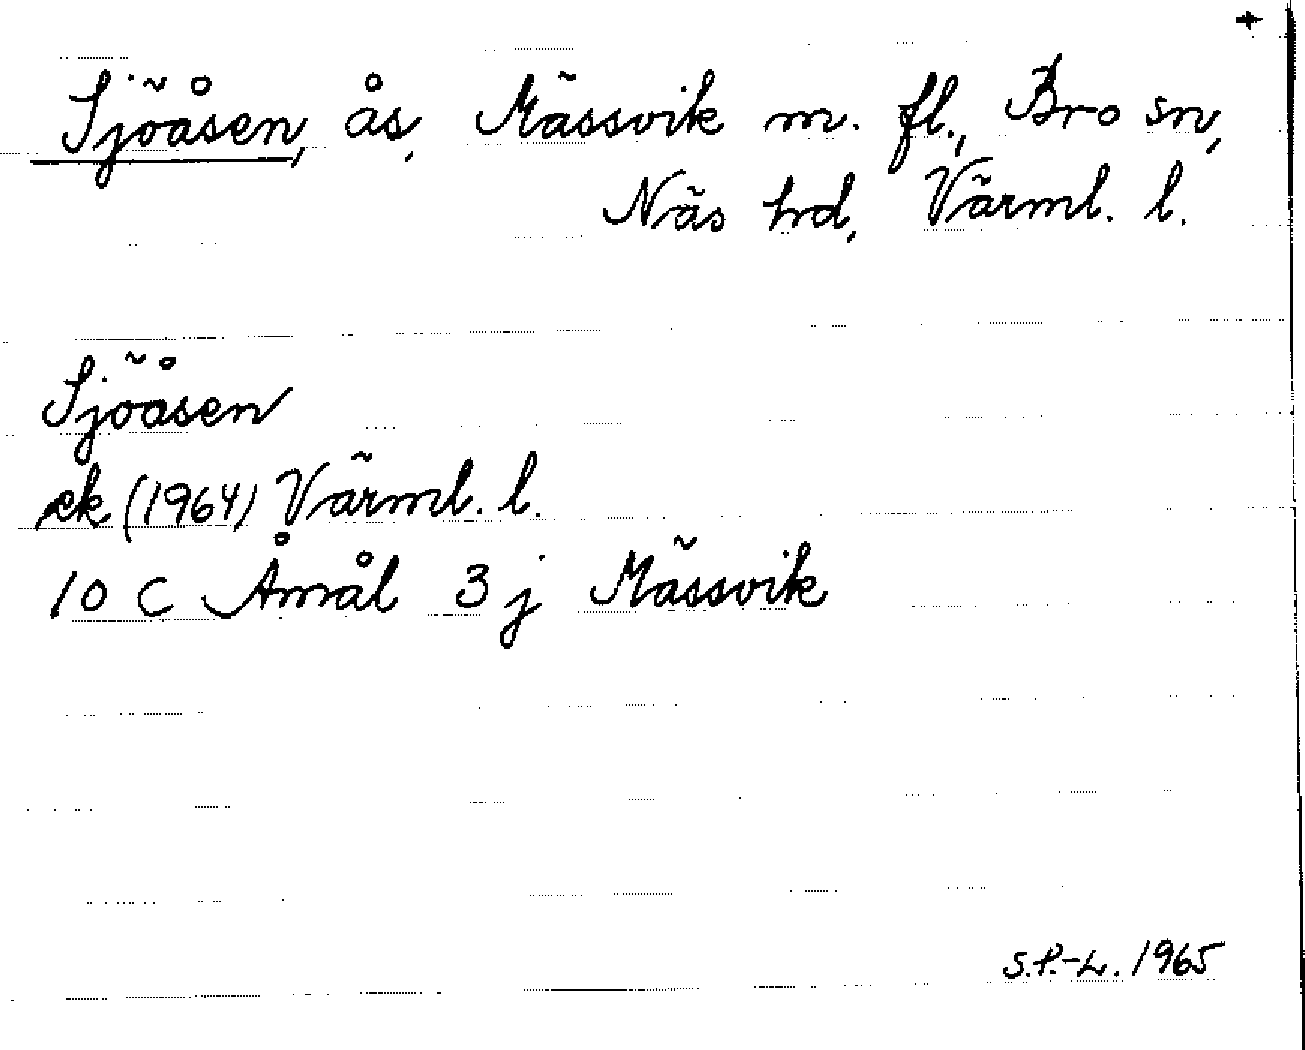 +
Sjöåsen, ås, Mässvik m. fl., Bro sn,
Näs hd, Värml. l.
Sjöåsen
ek (1964) Värml. l.
10 C Åmål 3 j Mässvik
S.P.-L. 1965